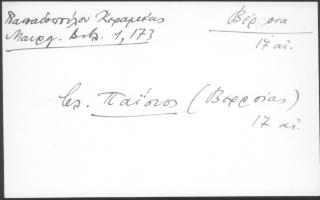 Παπαδοπούλου Κεραμέως
Μαυρ. Βιβ. 1, 173
Βέρροια
17 αἰ.
Παΐσιος (Βερροίας)
17 αἰ.